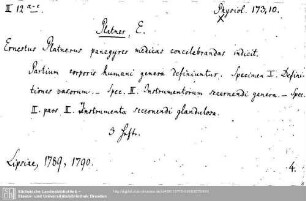 II 12 a-c.
Physiol. 173,10.
Platner, E.
Ernestus Platnerus panegyres medicas concelebrandas indicit.
Partium corporis humani genera definiuntur. Specimen I. Defini-
tiones vasorum. – Spec. II. Instrumentorum secernendi genera. – Spec.
II. pars II. Instrumenta secernendi glandulosa.
3 Hefte.
Lipsiae, 1789, 1790.
4.